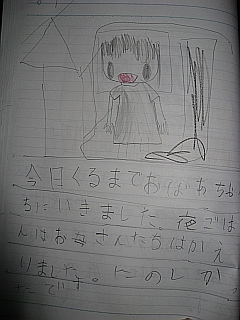 今日くるまでおばあちゃ
ちにいきました。夜ごは
んはお母さんたちはかえ
りました。
のしか
です。